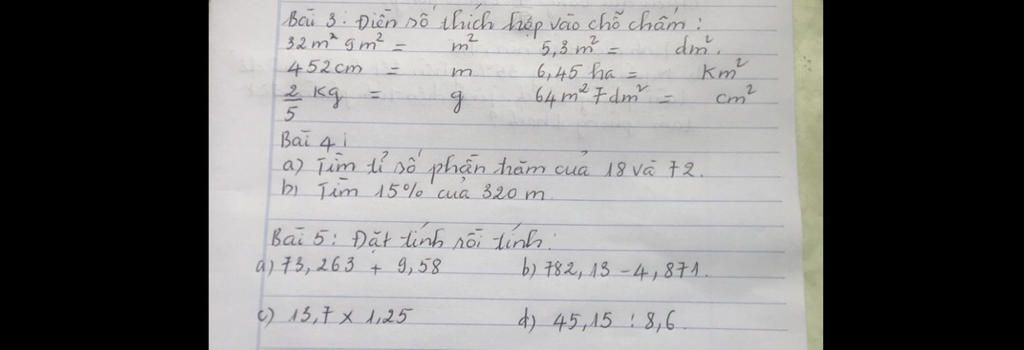 Bài 3: Điền số thích hợp vào chỗ chấm:
32m² 9m² = m² 5,3m² = dm².
452cm = m 6,45 ha = Km²
2/5 Kg = g 64m² 7dm² = cm²
Bài 4:
a) Tìm tỉ số phần trăm của 18 và 72.
b) Tìm 15% của 320 m
Bài 5: Đặt tính rồi tính:
a) 73,263 + 9,58 b) 782,13 - 4,871.
c) 13,7 x 1,25 d) 45,15 : 8,6.